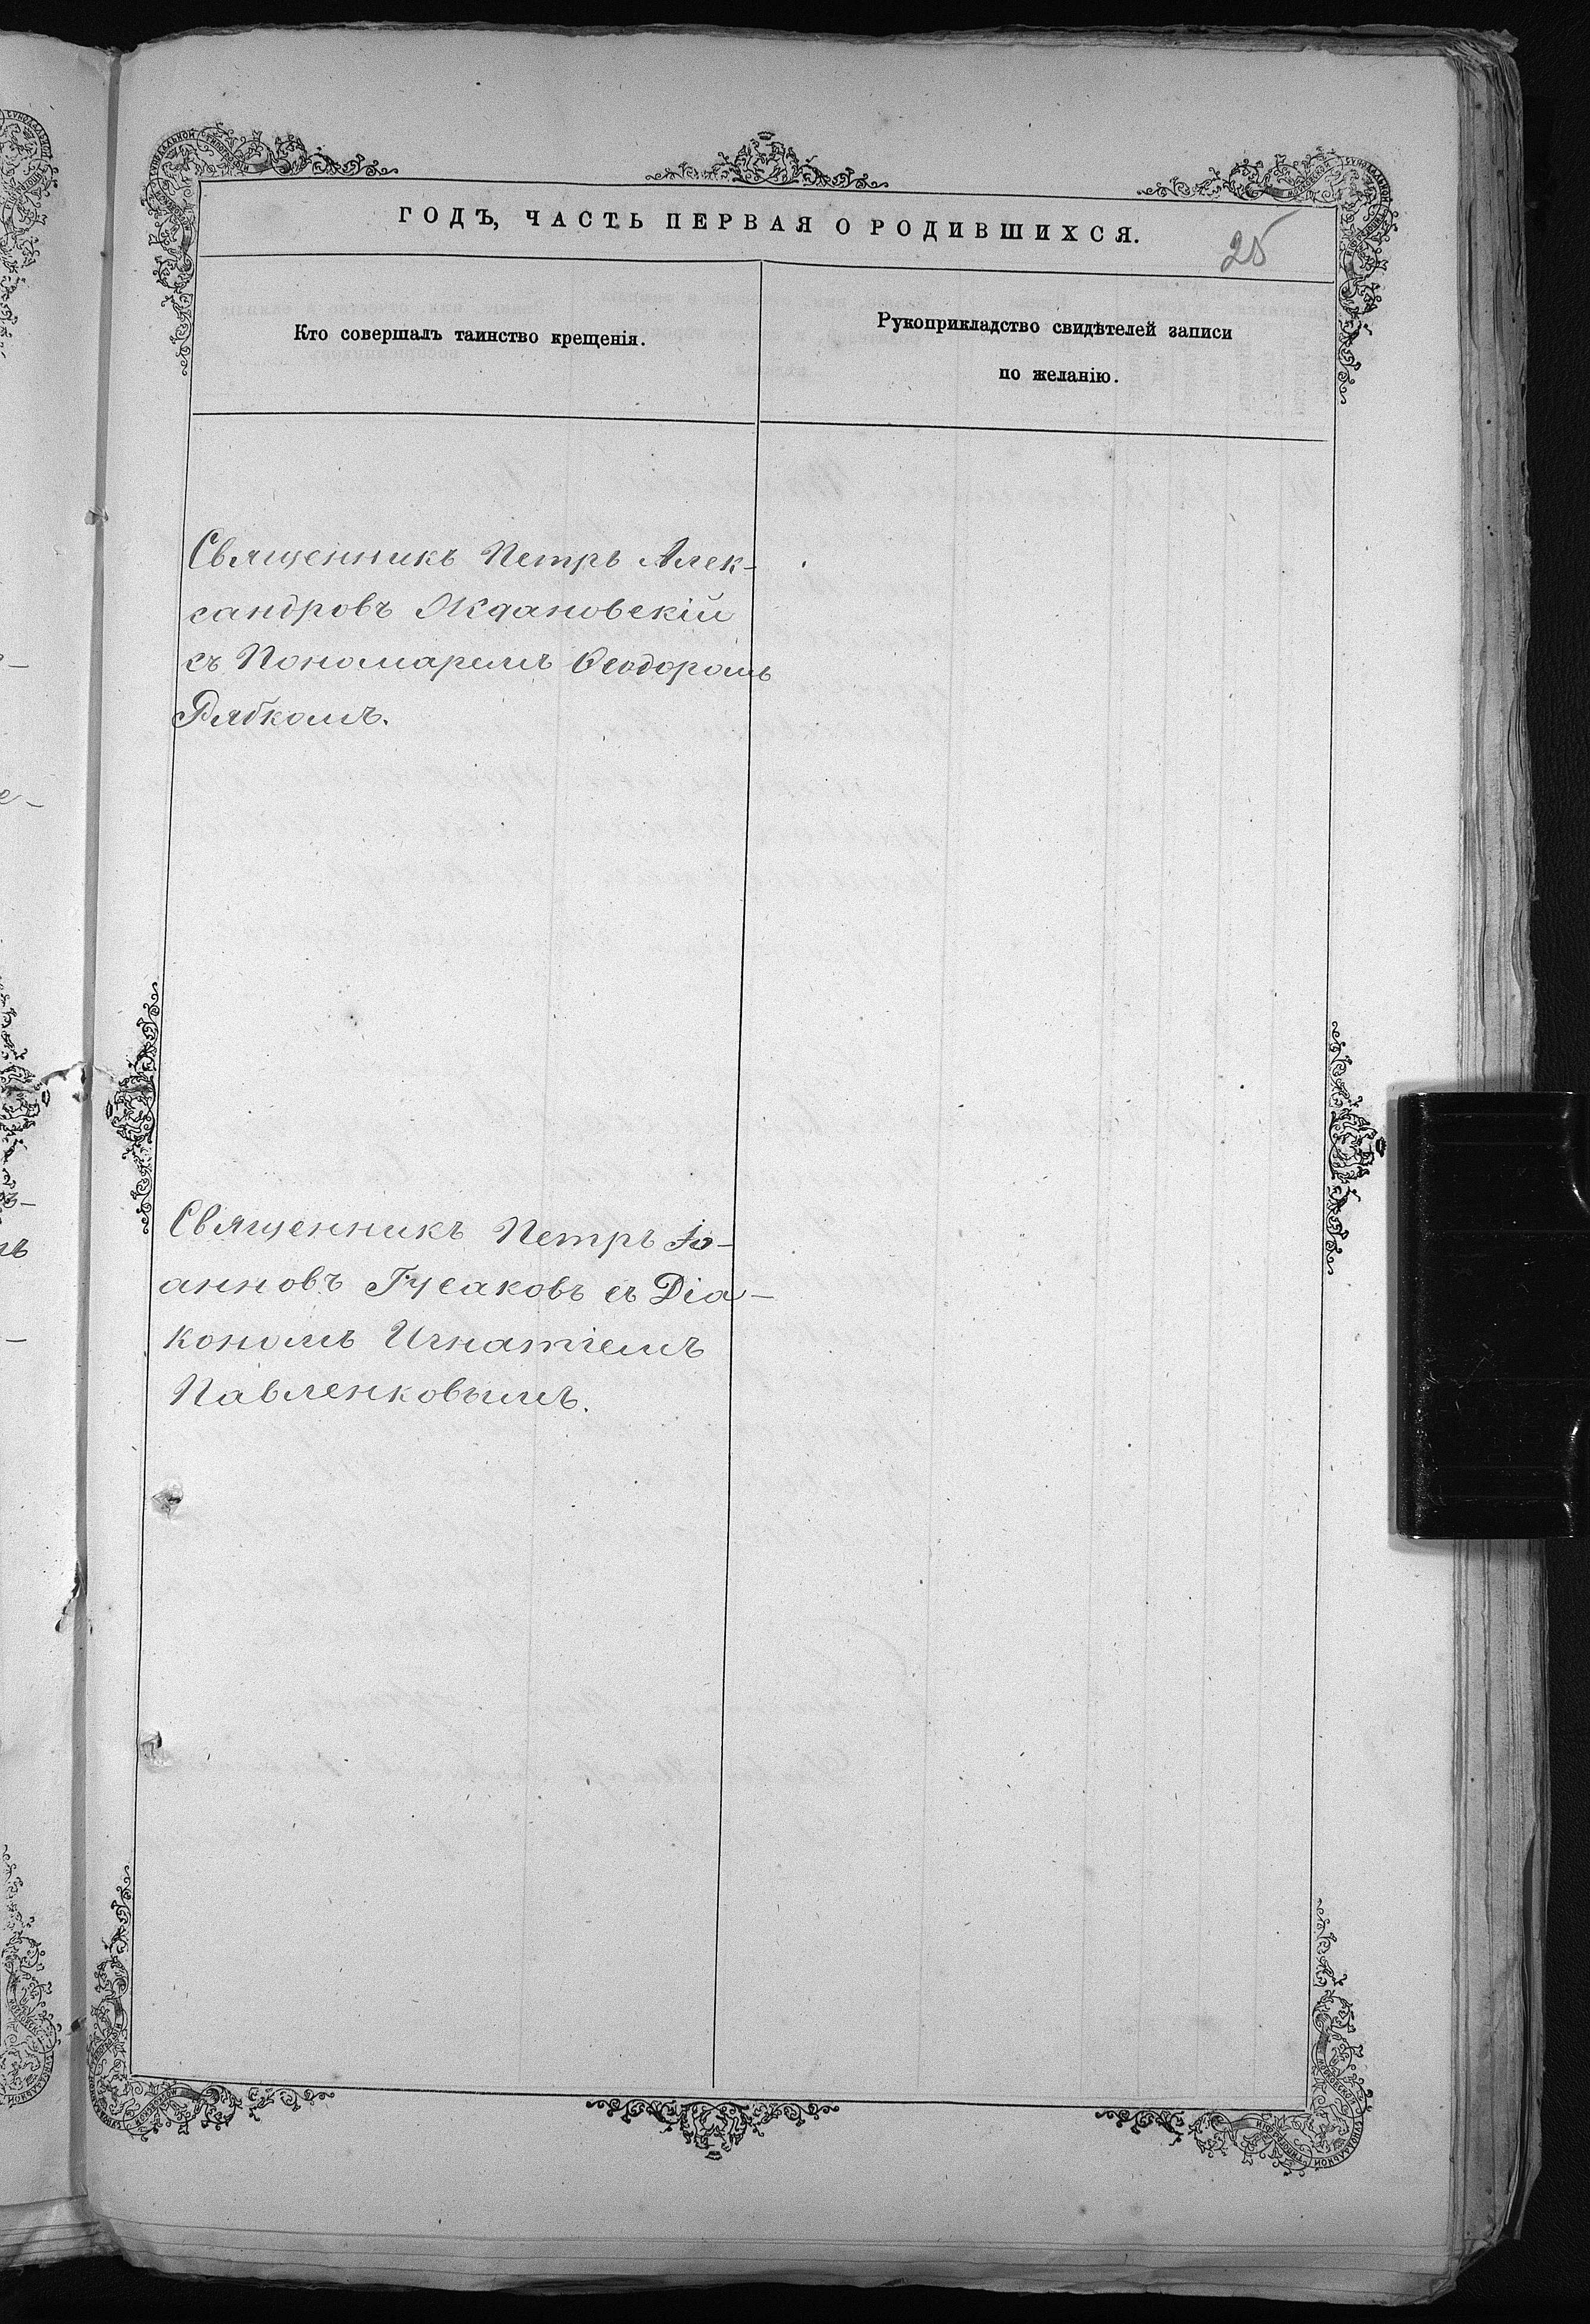 ГОДЪ, ЧАСТЬ ПЕРВАЯ О РОДИВШИХСЯ.
25
Кто совершалъ таинство крещенія.
Рукоприкладство свидѣтелей записи
по желанію.
Священникъ Петръ Алек-
сандровъ Ждановскій
съ Пономаремъ Ѳеодоромъ
Рябкомъ.
Священникъ Петръ Іо-
анновъ Гусаковъ съ Діа-
кономъ Игнатіемъ
Павленковымъ.